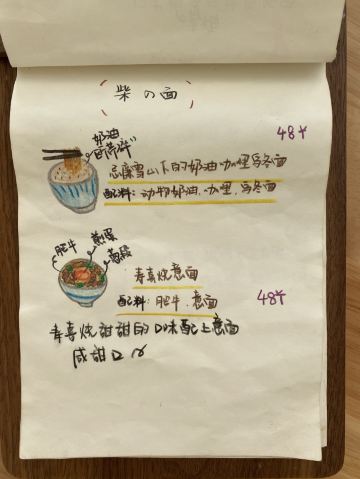 柴の面
奶油
48¥
忌廉雪山下的奶油咖喱乌冬面
配料：动物奶油、咖喱、乌冬面
肥牛
煎蛋
葱段
寿喜烧意面
配料：肥牛、意面
48¥
寿喜烧甜甜的口味配上意面
咸甜口